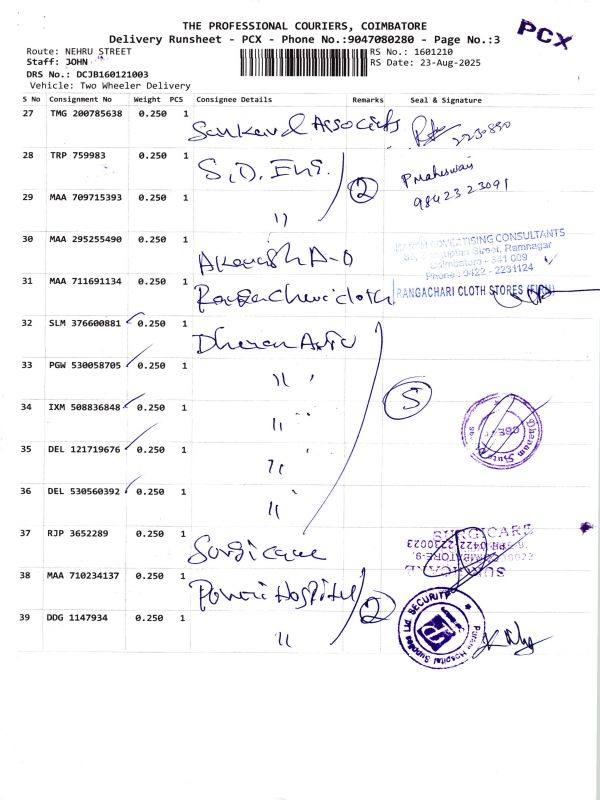 THE PROFESSIONAL COURIERS, COIMBATORE
Delivery Runsheet - PCX - Phone No.:9047080280 - Page No.:3
PCX
Route: NEHRU STREET
RS No.: 1601210
Staff: JOHN
RS Date: 23-Aug-2025
DRS No.: DCJB160121003
Vehicle: Two Wheeler Delivery
S No Consignment No Weight PCS Consignee Details Remarks Seal & Signature
27 TMG 200785638 0.250 1 Associats 2230850
28 TRP 759983 0.250 1 S.D. Eni. 2 PMaheswari
9842323091
29 MAA 709715393 0.250 1 "
30 MAA 295255490 0.250 1 Akarsh A-O
ADVERTISING CONSULTANTS
Street, Ramnagar
Coimbatore - 641 009
Phone : 0422 - 2231124
31 MAA 711691134 0.250 1 Rangachari cloth RANGACHARI CLOTH STORES (FIRM)
32 SLM 376600881 0.250 1
33 PGW 530058705 0.250 1 "
34 IXM 508836848 0.250 1 " 5
Dhanam
35 DEL 121719676 0.250 1 "
36 DEL 530560392 0.250 1 "
37 RJP 3652289 0.250 1 Surgicare
SURGICARE
PH: 0422-2230023
COIMBATORE-9.
SURGICARE
38 MAA 710234137 0.250 1 Hospital 2
Hospital Supplies Ltd. SECURITY
39 DDG 1147934 0.250 1 "